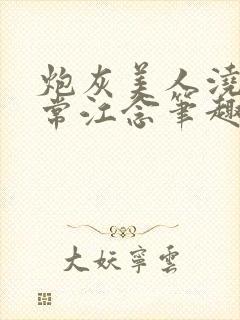 炮灰美人澆
常江念筆趣
大妖寧雲